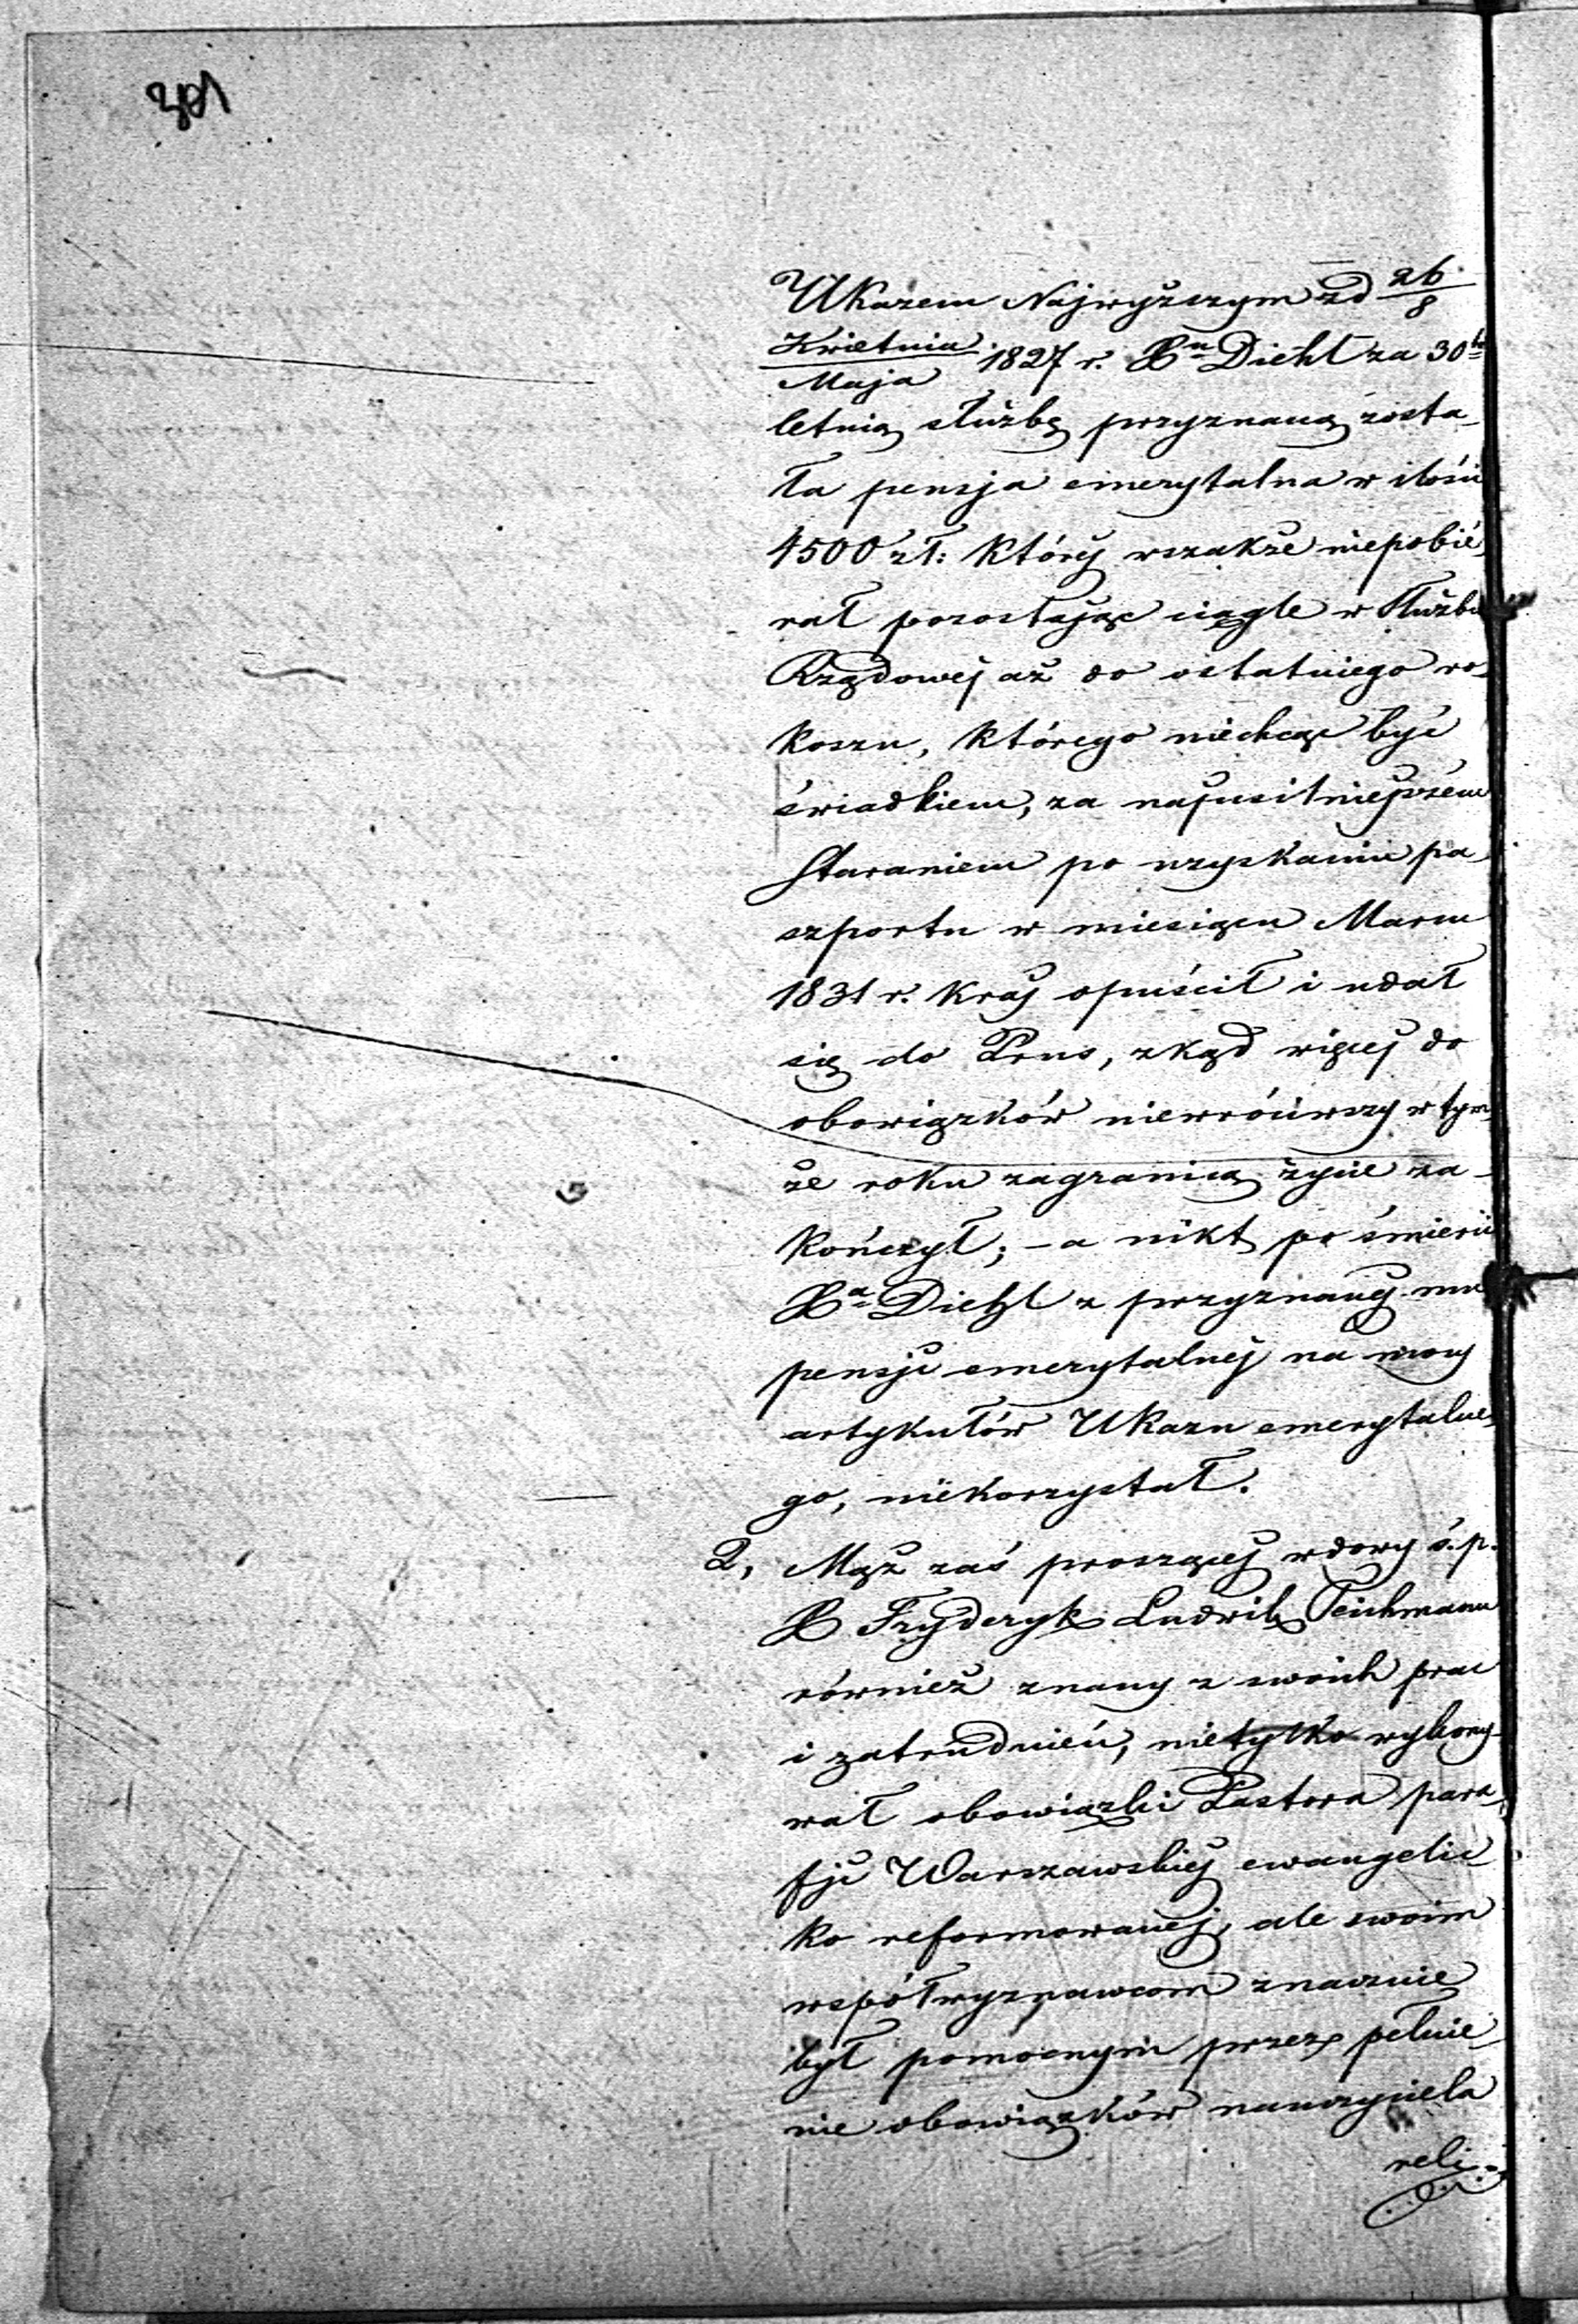 301
Ukazem Najwyższym z d 26/8
Kwietnia/Maja 1827 r. Xu Diehl za 30to
letnią służbę przyznaną zosta-
ła pensja emerytalna w ilości
4500 zł: który wszakże niepobié-
rał pozostając ciągle w Służbie
Rządowej aż do ostatniego ro-
koszu, którego niechcąc być
świadkiem, za najusilniejszém
staraniem po uzyskaniu pa-
szportu w miesiącu Marcu
1831 r. kraj opuścił i udał
się do Prus, zkąd więcej do
obowiązków niewróciwszy w tym-
że roku zagranicą życie za-
kończył; – a nikt po śmierci
Xa Diehl z przyznanéj mu
pensji emerytalnej na mocy
artykułów Ukazu emerytalne-
go, niekorzystał.
2, Mąż zaś proszącéj wdowy ś. p.
X Fryderyk Ludwik Teichmann
również znany z swoich prac
i zatrudnień, nietylko wykony-
wał obowiązki Pastora para-
fji Warszawskiéj ewangelic-
ko reformowanéj, ale swoim
współwyznawcom znacznie
był pomocnym przez pełnie-
nie obowiązków nauczyciela
reli-